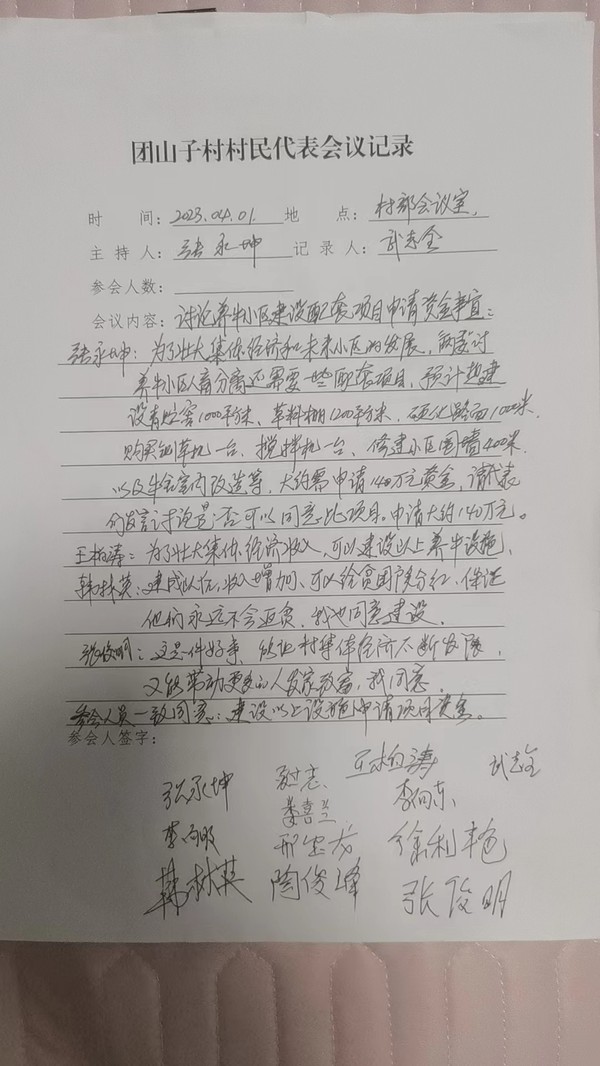 团山子村村民代表会议记录
时 间：2023.04.01. 地 点：村部会议室.
主持人：张永坤 记录人：武志全
参会人数：
会议内容：讨论养牛小区建设配套项目申请资金事宜：
张永坤：为了壮大集体经济和未来小区的发展，
养牛小区人畜分离还需要一些配套项目，预计想建
设青贮窖1000平方米、草料棚1200平方米、硬化路面1000米.
购买铡草机一台、搅拌机一台、修建小区围墙400米.
以及牛舍室内改造等，大约需申请140万元资金，请代表
们发言讨论是否可以同意此项目。申请大约140万元。
王柏涛：为了壮大集体经济收入，可以建设以上养牛设施.
韩树英：建成以后，收入增加、可以给贫困户分红、保证
他们永远不会返贫，我也同意建设.
张俊明：这是一件好事，能让村集体经济不断发展，
又能带动更多的人发家致富，我同意.
参会人员一致同意：建设以上设施申请项目资金。
参会人签字：
张永坤 王柏涛 武志全
姜喜兰 李向东
李向明 徐利艳
韩树英 陶俊峰 张俊明